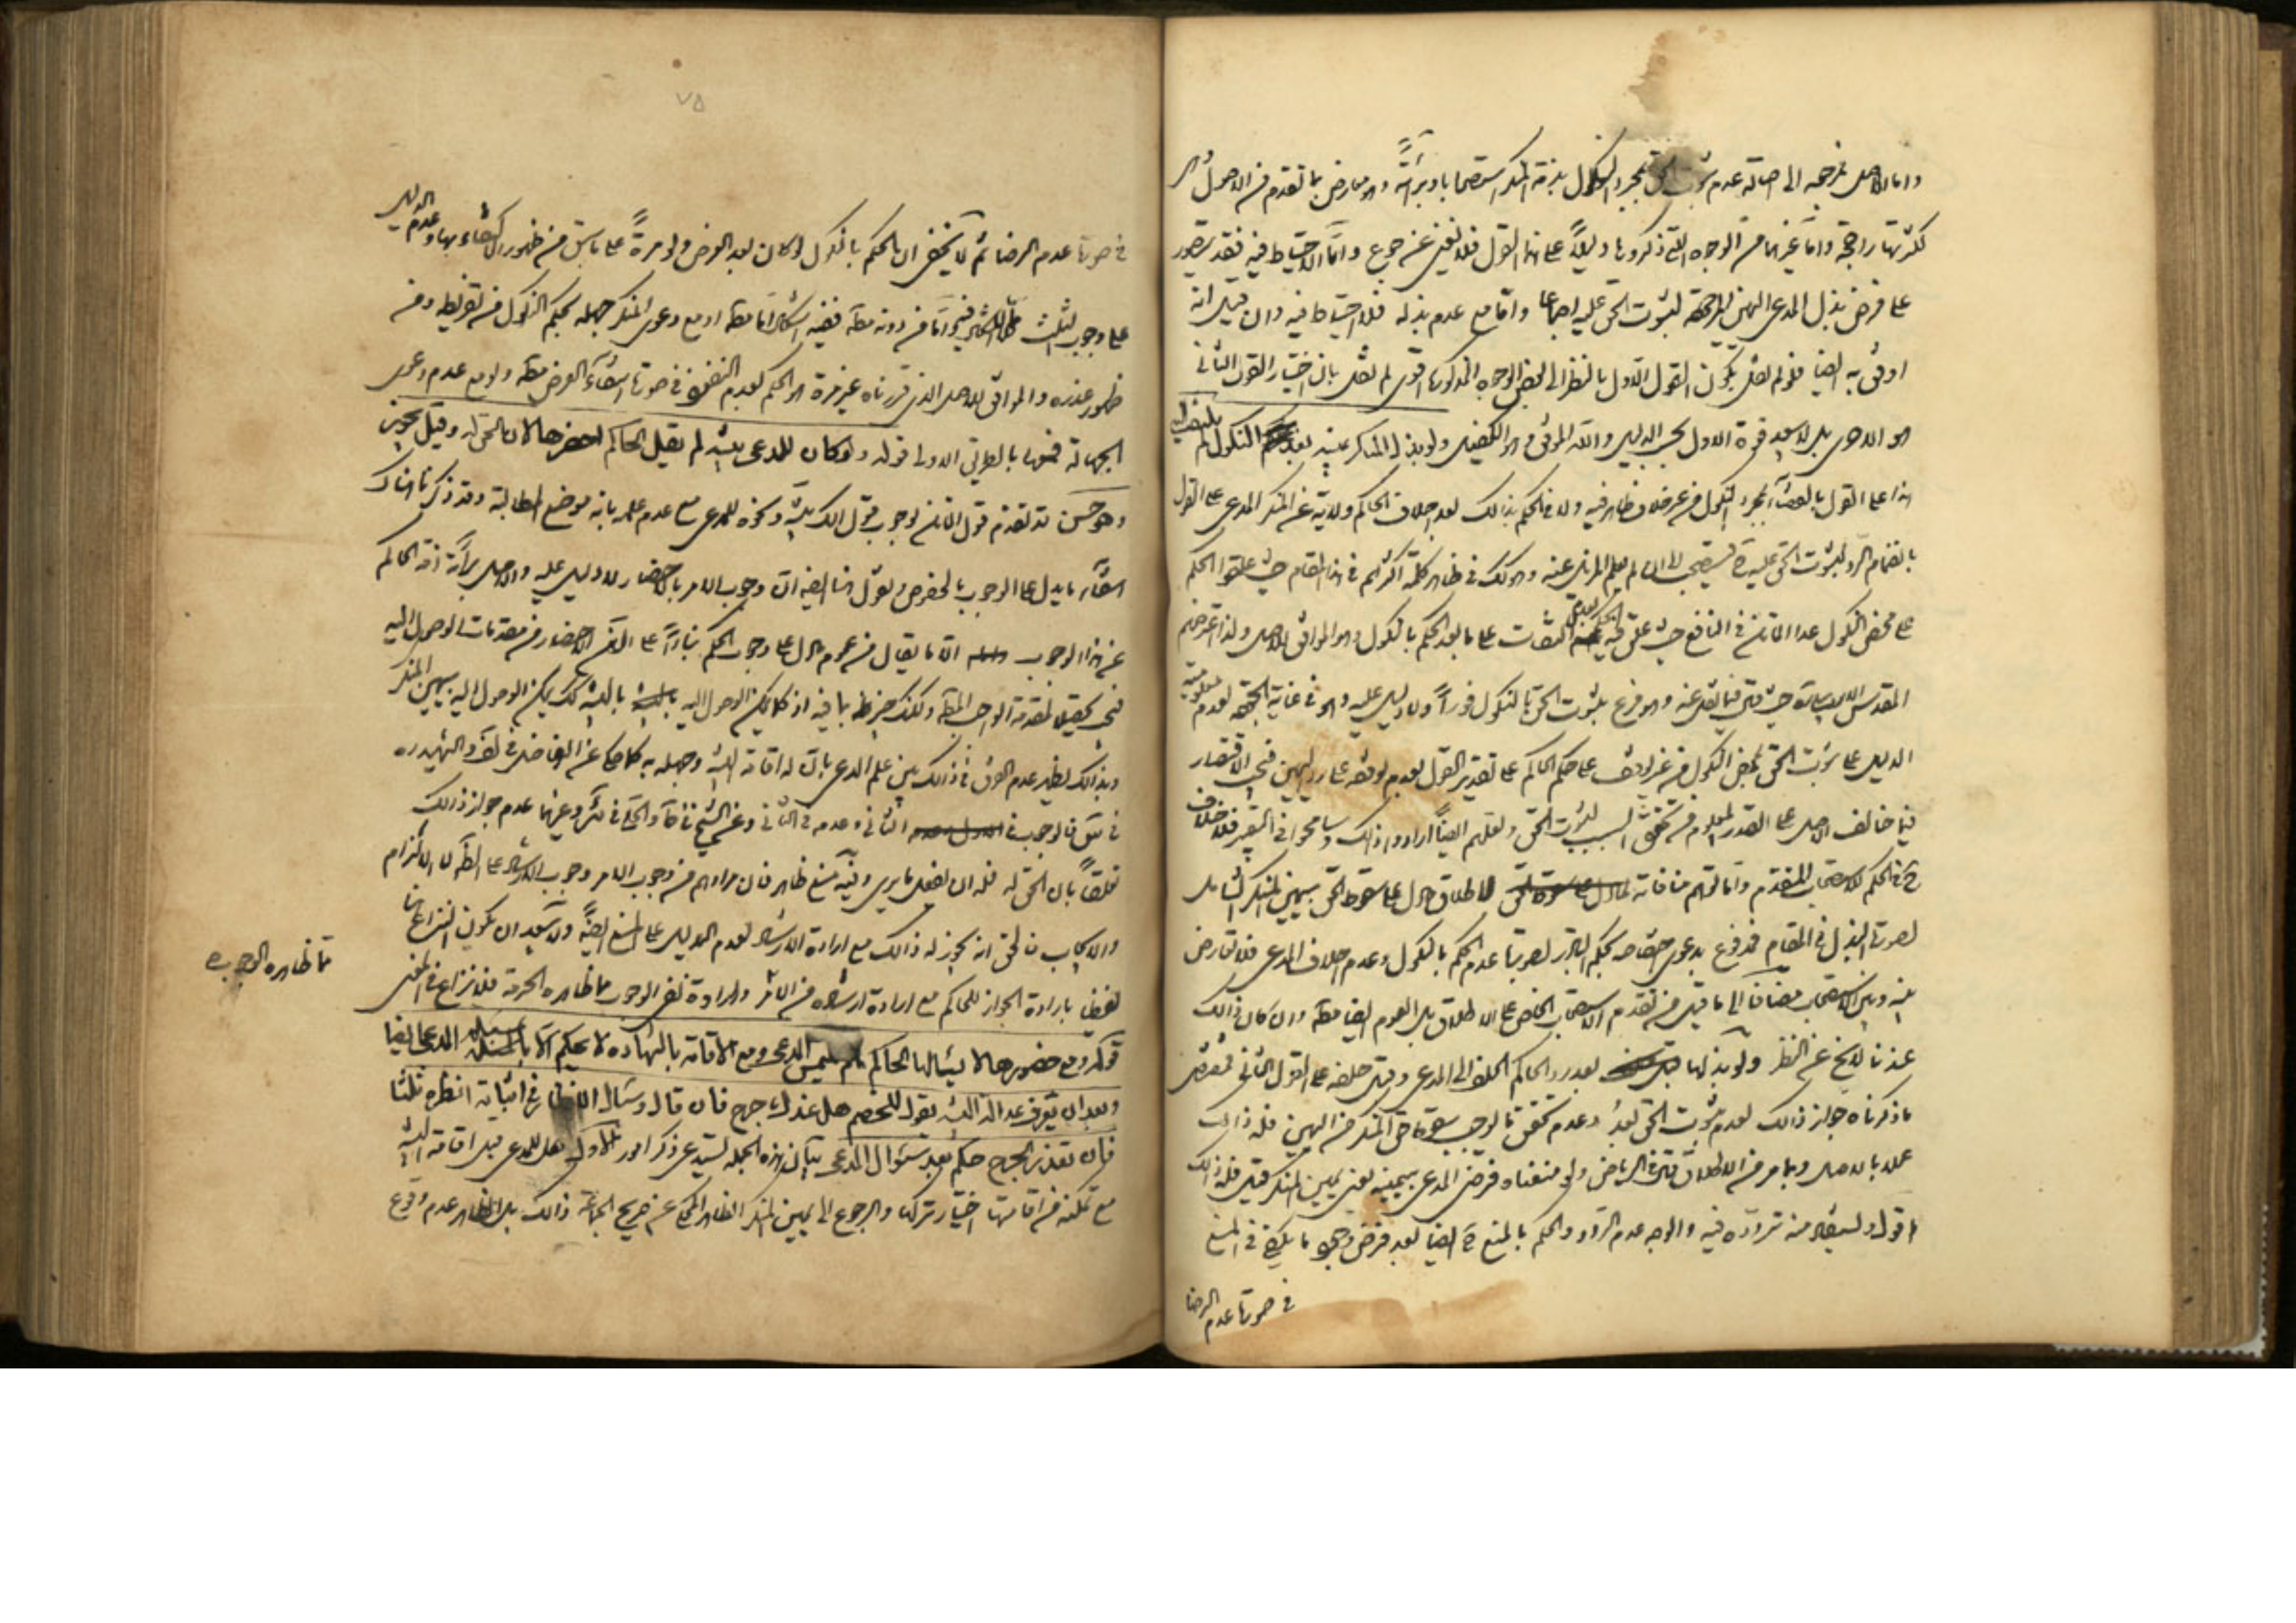 واما الاصل فمرجعه الى اصالة عدم ثبوت الحق بمجرد النكول بذمة المنكر استصحابا وبرائة وهو معارض بما تقدم من الاصول
لكثرتها راجحة واما غيرهما من الوجوه التي ذكروها دليلاً على هذا القول فلا يغني عن جوع واما الاحتياط فيه فقد يتصور
على فرض بذل المدعى اليمين لثبوت الحق عليه اجماعا واما مع عدم بذله فلا احتياط فيه وان قيل انه
اوفق به ايضا فلو لم نقل بكون القول الاول بالنظر الى بعض الوجوه المذكورة اقوى لم نقل بان اختيار القول الثاني
هو الاحرى بل لا يبعد قوة الاول بحسب الدليل والله الموفق وهو الكفيل ولو بذل المنكر يمينه بعد النكول لم يلتفت اليه
هذا على القول بالقضاء بمجرد النكول من غير خلاف ظاهر فيه ولا في الحكم بذلك بعد احلاف الحاكم ولاية عن المنكر المدعى على القول
بانضمام الرد لثبوت الحق عليه فيستصحب الا ان لم يعلم المزيل عنه وهو كك في ظاهر كلمة اكثرهم في هذا المقام حيث علقوا الحكم
على محض النكول عدا الماتن في النافع حيث علق فيه الحكم بعدم التفات على ما بعد الحكم بالنكول وهو الموافق للاصل ولذا
المقدس الاردبيلي حيث قال فيما نقل عنه وهو فرع ثبوت الحق بالنكول فوراً ولا دليل عليه وهو في غاية الجودة لعدم معلومية
الدليل على ثبوت الحق بمحض النكول من غير توقف على حكم الحاكم على تقدير القول بعدم توقفه على رد اليمين فيجب الاقتصار
فيما خالف الاصل على القدر المعلوم من تحقق السبب لثبوت الحق ولعلهم ايضاً ارادوا ذلك وسامحوا في التعبير فلا خلاف
ح في الحكم للاستصحاب المتقدم واما توهم منافاته لاطلاق ما دل على سقوط الحق بيمين المنكر الشامل
لصورة البذل في المقام فمدفوع بدعوى اختصاصه بحكم التبادر بصورة عدم الحكم بالنكول وعدم احلاف المدعى فلا تعارض
بينه وبين الاستصحاب مضافا الى ما قيل من تقدم الاستصحاب الخاص على الاطلاق بل العموم ايضا مطلقا وان كان ذلك
عندنا لا يخ عن النظر ولو بذلها بعد رد الحاكم الحلف الى المدعى وقبل حلفه على القول الثاني فمقتضى
ما ذكرناه جواز ذلك لعدم ثبوت الحق بعد وعدم تحقق ما يوجب سقوط حق المنكر من اليمين فله ذلك
عملا بالاصل وبما مر من الاطلاق قال في الرياض ولو منعناه فرضى المدعى بيمينه يعنى بيمين المنكر قيل فله ذلك
اقول ويستفاد منه تردده فيه والوجه عدم التردد والحكم بالمنع ح ايضا بعد فرض وجود ما يكفي في المنع
في صورة عدم الرضا
٧٥
في صورة عدم الرضا ثم لا يخفى ان الحكم بالنكول لو كان بعد العرض ولو مرةً على ما سبق من ظهور الاكتفاء بها وعدم الدليل
على وجوب الثلث فلا اشكال فيه واما من دونه مطلقا ففيه اشكال اما مطلقا او مع دعوى المنكر جهله بحكم النكول من تفريطه ومن
ظهور عذره والموافق للاصل الذي قررناه غير مرة هو الحكم بعدم النفوذ في صورة انتفاء العرض مطلقا ولو مع عدم دعوى
الجهالة فمعها بالطريق الاولى قوله ولو كان للمدعى بينة لم يقل الحاكم احضرها لان الحق له وقيل يجوز
وهو حسن قد تقدم قول الماتن بوجوب قول الك بينة ونحوه للمدعى مع عدم علمه بانه موضع المطالبة وقد ذكرنا هناك
انتفاء ما يدل على الوجوب بالخصوص ونقول هنا ايضا ان وجوب الامر بالاحضار لا دليل عليه والاصل برائة ذمة الحاكم
عن هذا الوجوب الا ما يقال من عموم ما دل على وجوب الحكم بناءاً على ان الاحضار من مقدمات الوصول اليه
فيجب تحصيل المقدمة الواجب المطلق ولكنك خبير بما فيه اذ كما يمكن الوصول اليه بالبينة كك يمكن الوصول اليه بيمين المنكر
وبذلك يظهر عدم الفرق في ذلك بين علم المدعى بان له اقامة البينة وجهله به كما حكى عن الفاضل في لف والشهيد ره
في س فالوجوب في الثاني وعدمه في الثاني وعن الشيخ في ف والحلي في ئر وغيرهما عدم جواز ذلك
تعلقاً بان الحق له فله ان يفعل ما يرى وفيه منع ظاهر فان مرادهم من وجوب الامر وجوب الارشاد على الظ لا الالزام
والايجاب فالحق انه يجوز له ذلك مع ارادة الارشاد لعدم الدليل على المنع ايضاً ولا يبعد ان يكون النزاع هنا
لفظيا بارادة الجواز للحاكم مع ارادة ارشاده من الامر وارادة نفى الوجوب مما ظاهره الحرمة فلا نزاع في المعنى
مما ظاهره الوجوب ه
قوله ومع حضورها لا يسألها الحاكم ما لم يلتمس المدعى ومع الاقامة بالشهادة لا يحكم الا بمسئلة المدعى ايضا
وبعد ان يعرف عدالة البينة يقول للخصم هل عندك جرح فان قال وسأل الانظار في اثباته انظره ثلثا
فان تعذر الجرح حكم بعد سؤال المدعى بيان هذه الجملة يستدعى ذكر امور الاول هل للمدعى قبل اقامة البينة
مع تمكنه من اقامتها اختيار تركها والرجوع الى يمين المنكر الظاهر المحكى عن صريح الجماعة ذلك بل الظاهر عدم وقوع